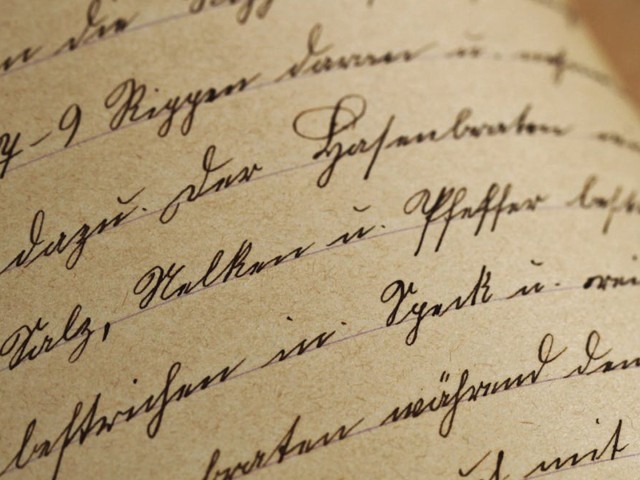 n die
7-9 Rippen daran u.
dazu. Der Hasenbraten
Salz, Nelken u. Pfeffer
bestrichen in Speck u.
braten während den
mit